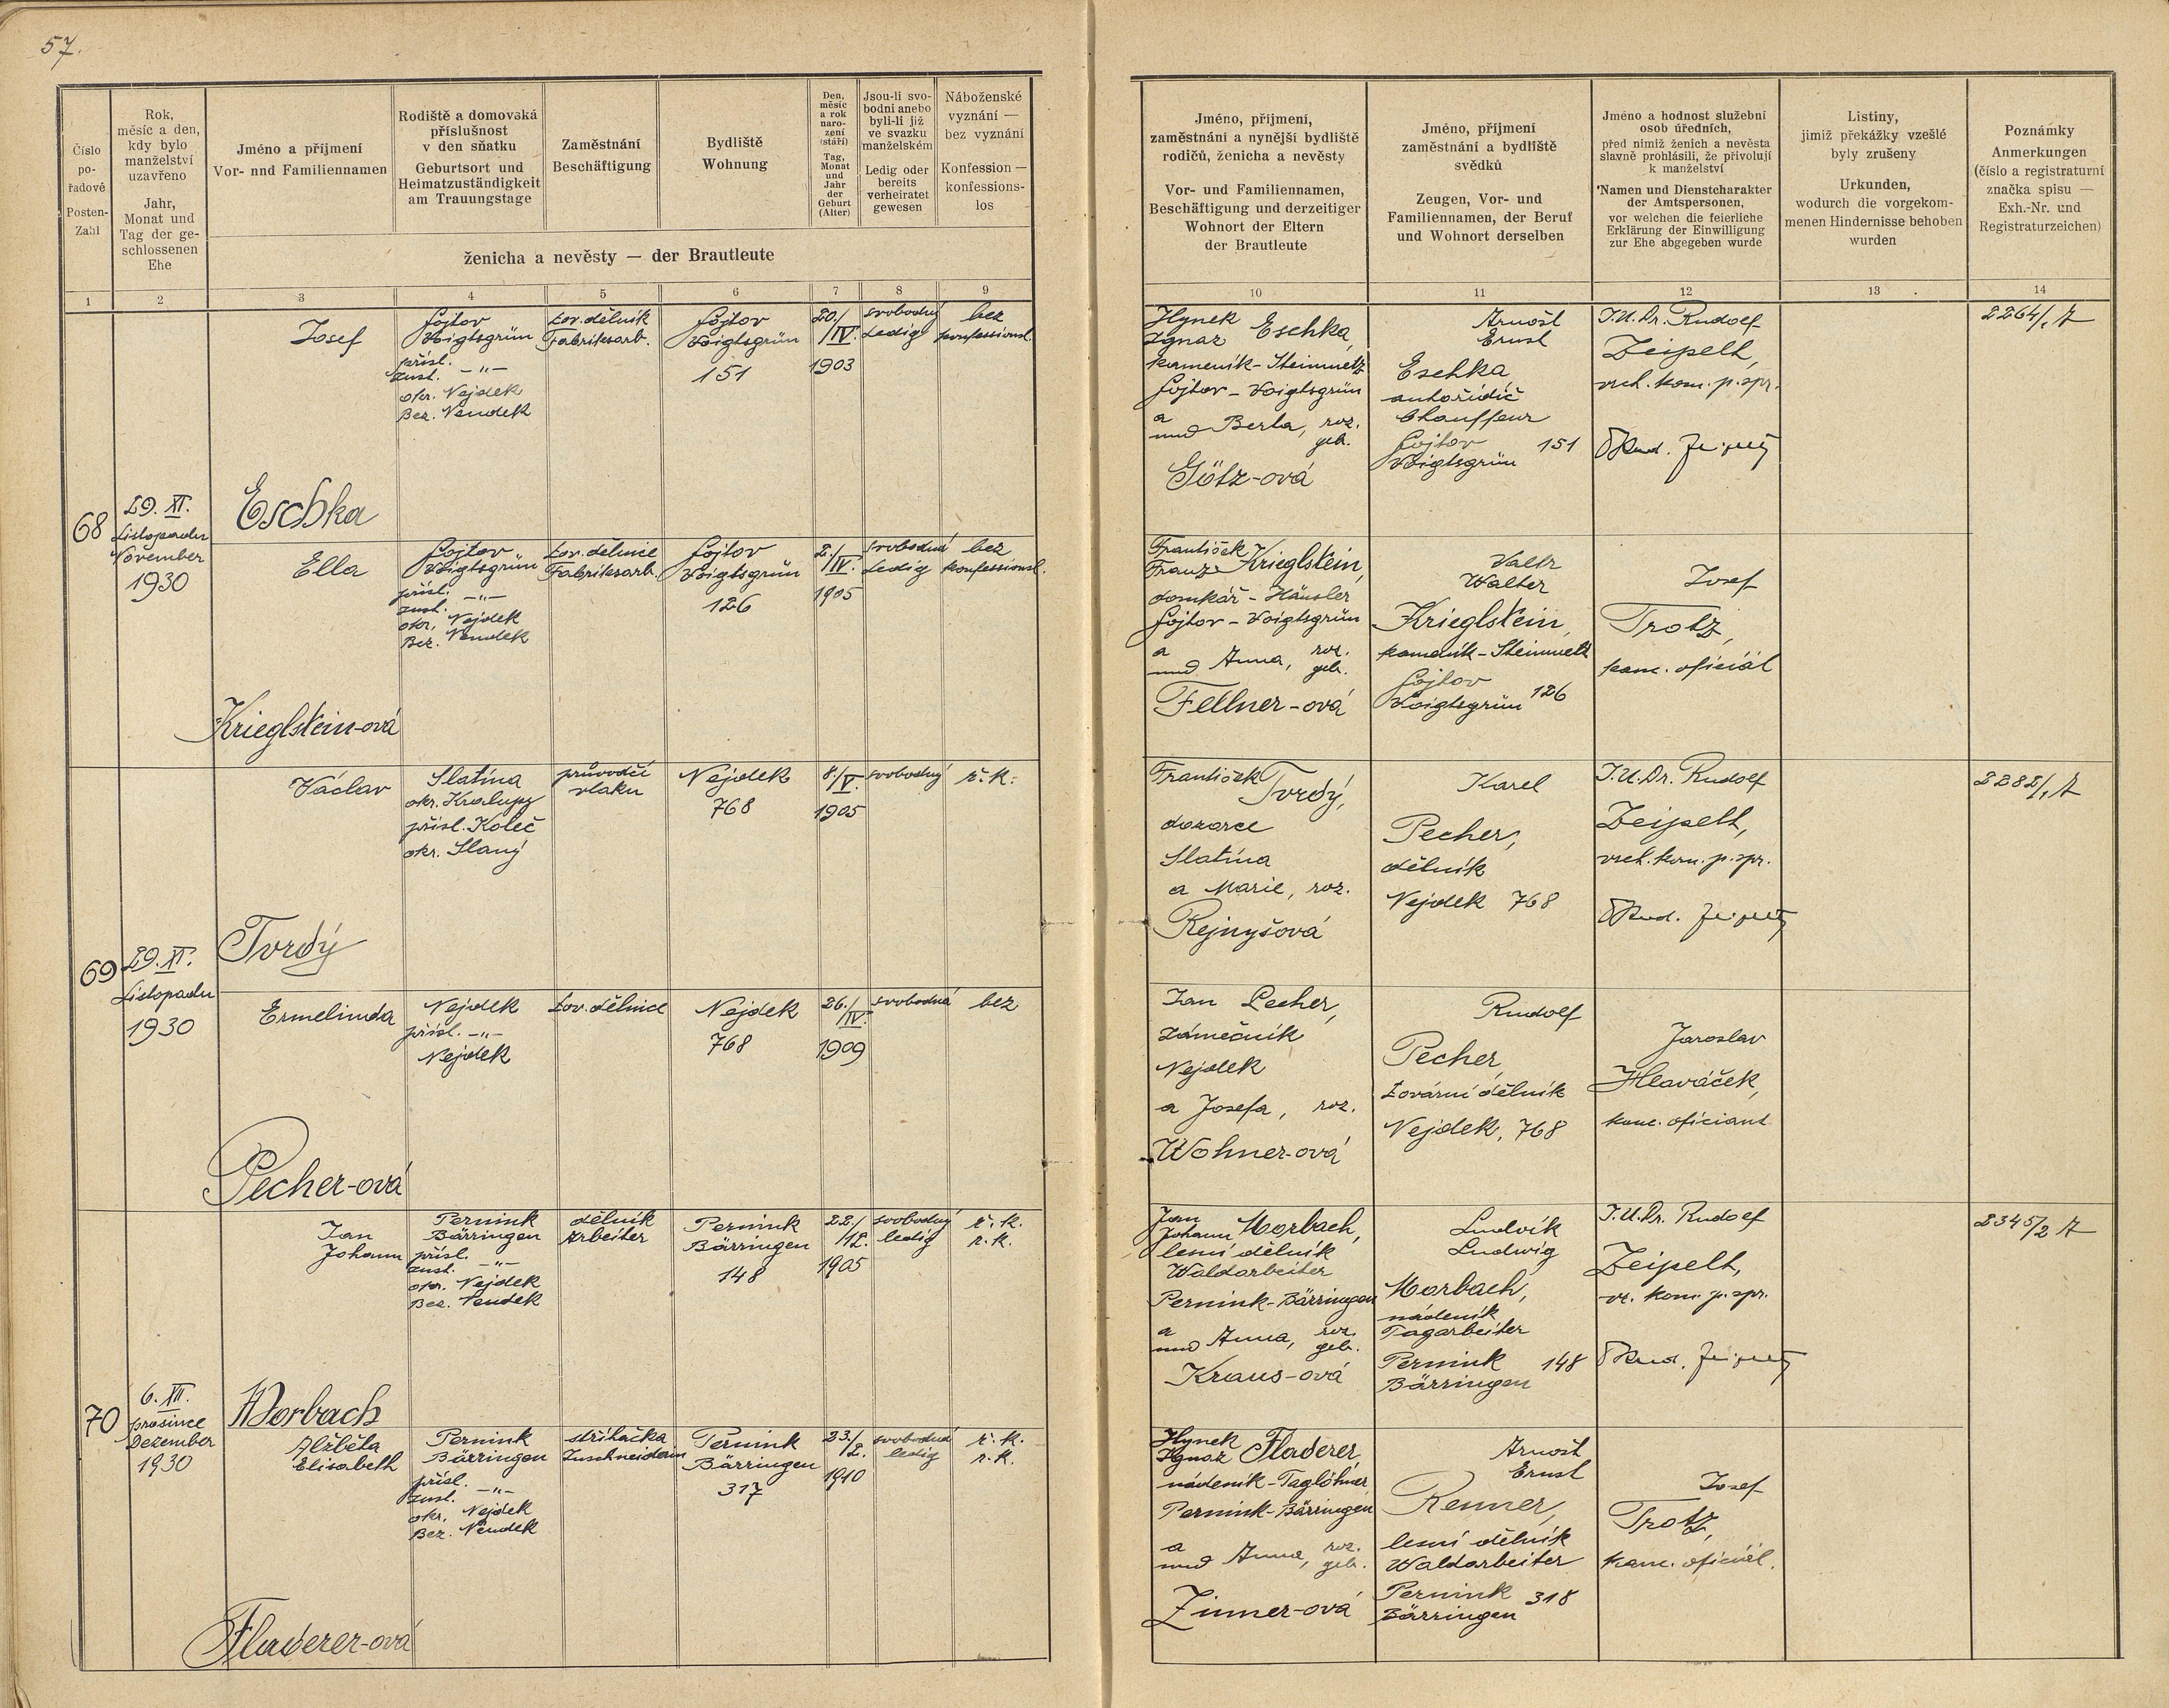 57.
Číslo
po-
řadové
Posten-
Zahl
Rok,
měsíc a den,
kdy bylo
manželství
uzavřeno
Jahr,
Monat und
Tag der ge-
schlossenen
Ehe
Jméno a příjmení
Vor- nnd Familiennamen
Rodiště a domovská
příslušnost
v den sňatku
Geburtsort und
Heimatzuständigkeit
am Trauungstage
Zaměstnání
Beschäftigung
Bydliště
Wohnung
Den,
měsíc
a rok
naro-
zení
(stáří)
Tag,
Monat
und
Jahr
der
Geburt
(Alter)
Jsou-li svo-
bodni anebo
byli-li již
ve svazku
manželském
Ledig oder
bereits
verheiratet
gewesen
Náboženské
vyznání —
bez vyznání
Konfession —
konfessions-
los
ženicha a nevěsty — der Brautleute
Jméno, příjmení,
zaměstnání a nynější bydliště
rodičů, ženicha a nevěsty
Vor- und Familiennamen,
Beschäftigung und derzeitiger
Wohnort der Eltern
der Brautleute
Jméno, příjmení
zaměstnání a bydliště
svědků
Zeugen, Vor- und
Familiennamen, der Beruf
und Wohnort derselben
Jméno a hodnost služební
osob úředních,
před nimiž ženich a nevěsta
slavně prohlásili, že přivolují
k manželství
Namen und Dienstcharakter
der Amtspersonen,
vor welchen die feierliche
Erklärung der Einwilligung
zur Ehe abgegeben wurde
Listiny,
jimiž překážky vzešlé
byly zrušeny
Urkunden,
wodurch die vorgekom-
menen Hindernisse behoben
wurden
Poznámky
Anmerkungen
(číslo a registraturní
značka spisu —
Exh.-Nr. und
Registraturzeichen)
1 2 3 4 5 6 7 8 9 10 11 12 13 14
68
29. XI.
Listopadu
November
1930
Josef
Eschka
Fojtov
Voigtsgrün
přísl.
zust. -"-
okr. Nejdek
Bez. Neudek
tov. dělník
Fabriksarb.
Fojtov
Voigtsgrün
151
20./
IV.
1903
svobodný
Ledig
bez
konfessionsl.
Hynek
Ignaz Eschka,
kameník - Steinmetz
Fojtov - Voigtsgrün
a
und Berta, roz.
geb.
Götz-ová
Arnošt
Ernst
Eschka
autořidič
Chauffeur
Fojtov
Voigtsgrün 151
J.U.Dr. Rudolf
Zeipelt,
vrch. kom. p. spr.
2264/1 A
Ella
Krieglstein-ová
Fojtov
Voigtsgrün
přísl.
zust. -"-
okr. Nejdek
Bez. Neudek
tov. dělnice
Fabriksarb.
Fojtov
Voigtsgrün
126
2./
IV.
1905
svobodná
Ledig
bez
konfessionsl.
František
Franz Krieglstein,
domkář - Häusler
Fojtov - Voigtsgrün
a
und Anna, roz.
geb.
Fellner-ová
Valtr
Walter
Krieglstein,
kameník - Steinmetz
Fojtov
Voigtsgrün 126
Josef
Trotz,
kanc. oficiál
69
29. XI.
Listopadu
1930
Václav
Tvrdý
Slatina
okr. Kralupy
přísl. Koleč
okr. Slaný
průvodčí
vlaku
Nejdek
768
8./
V.
1905
svobodný
ř. k.
František
Tvrdý,
dozorce
Slatina
a Marie, roz.
Rejnyšová
Karel
Pecher,
dělník
Nejdek 768
J.U.Dr. Rudolf
Zeipelt,
vrch. kom. p. spr.
2282/1 A
Ermelinda
Pecher-ová
Nejdek
přísl. -"-
Nejdek
tov. dělnice
Nejdek
768
26./
IV.
1909
svobodná
bez
Jan Pecher,
zámečník
Nejdek
a Josefa, roz.
Wohner-ová
Rudolf
Pecher,
tovární dělník
Nejdek, 768
Jaroslav
Hlaváček,
kanc. oficiant
70
6. XII.
prosince
Dezember
1930
Jan
Johann
Morbach
Pernink
Bärringen
přísl.
zust. -"-
okr. Nejdek
Bez. Neudek
dělník
Arbeiter
Pernink
Bärringen
148
22./
12.
1905
svobodný
ledig
ř. k.
r. k.
Jan
Johann Morbach,
lesní dělník
Waldarbeiter
Pernink - Bärringen
a
und Anna, roz.
geb.
Kraus-ová
Ludvík
Ludwig
Morbach,
nádeník
Tagarbeiter
Pernink
Bärringen 148
J.U.Dr. Rudolf
Zeipelt,
vr. kom. p. spr.
2345/2 A
Alžběta
Elisabeth
Fladerer-ová
Pernink
Bärringen
přísl.
zust. -"-
okr. Nejdek
Bez. Neudek
střihačka
Zuschneiderin
Pernink
Bärringen
317
23./
2.
1910
svobodná
ledig
ř. k.
r. k.
Hynek
Ignaz Fladerer,
nádeník - Taglöhner
Pernink - Bärringen
a
und Anna, roz.
geb.
Zinner-ová
Arnošt
Ernst
Renner,
lesní dělník
Waldarbeiter
Pernink
Bärringen 318
Josef
Trotz,
kanc. oficiál.